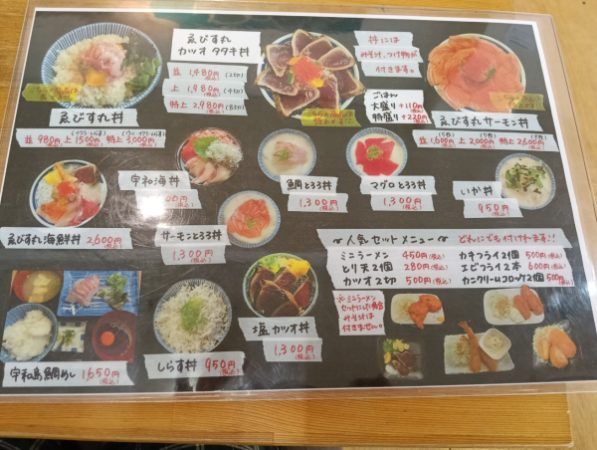 ゑびす丸
カツオタタキ丼
並 1,480円 (税込)
上 1,980円 (税込)
特上 2,980円 (税込)
丼には
みそ汁、つけ物が
付きます。
ごはん
大盛り +110円
特盛り +220円
ゑびす丸丼
並 980円 上 1500円 特上 3,000円
(税込)
ゑびす丸サーモン丼
並 1,600円 上 2,000円 特上 2,600円
(税込)
宇和海丼
鯛とろろ丼
1,300円
(税込)
マグロとろろ丼
1,300円
(税込)
いか丼
950円
(税込)
ゑびす丸海鮮丼 2600円
(税込)
サーモンとろろ丼
1,300円
(税込)
〜人気セットメニュー〜 どれにでも付けれます!!
ミニラーメン 450円(税込)
とり天2個 280円(税込)
カツオ2切 500円(税込)
カキフライ2個 500円(税込)
エビフライ2本 600円(税込)
カニクリームコロッケ2個 500円(税込)
※ミニラーメン
セットにした場合
みそ汁は
付きません。
塩カツオ丼
1,300円
(税込)
しらす丼 950円
(税込)
宇和島鯛めし 1650円
(税込)